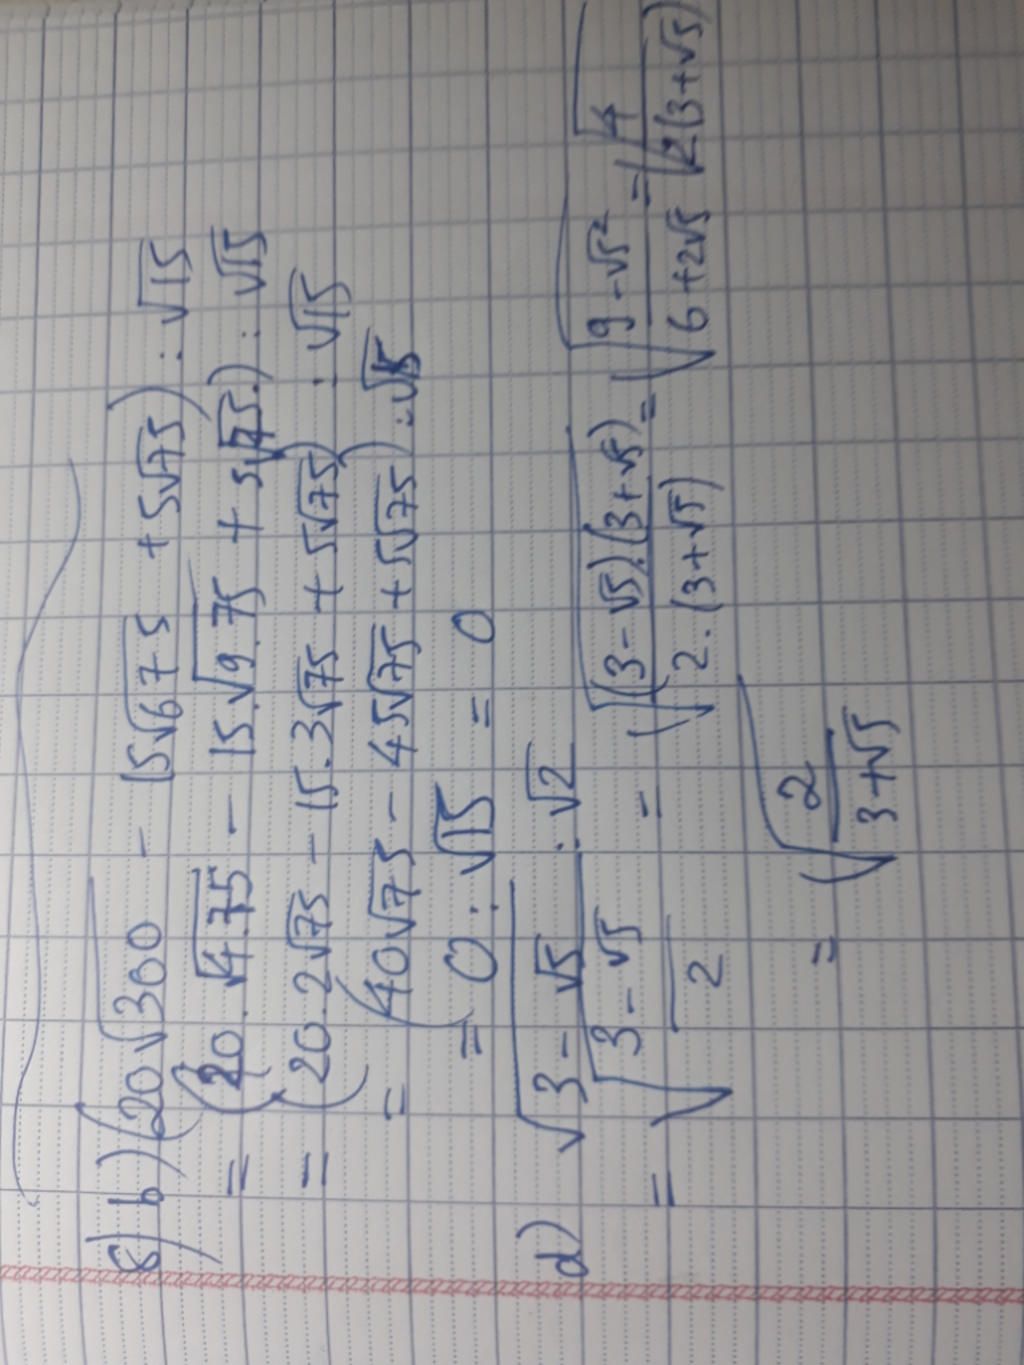 8) b) (20√300 - 15√675 + 5√75) : √15
= (20.√4.75 - 15√9.75 + 5√75) : √15
= (20.2√75 - 15.3√75 + 5√75) : √15
= (40√75 - 45√75 + 5√75) : √15
= 0 : √15 = 0
d) √(3-√5) : √2
= √((3-√5)/2) = √((3-√5).(3+√5)/(2.(3+√5))) = √((9-√5²)/(6+2√5)) = √(4/(2(3+√5)))
= √(2/(3+√5))